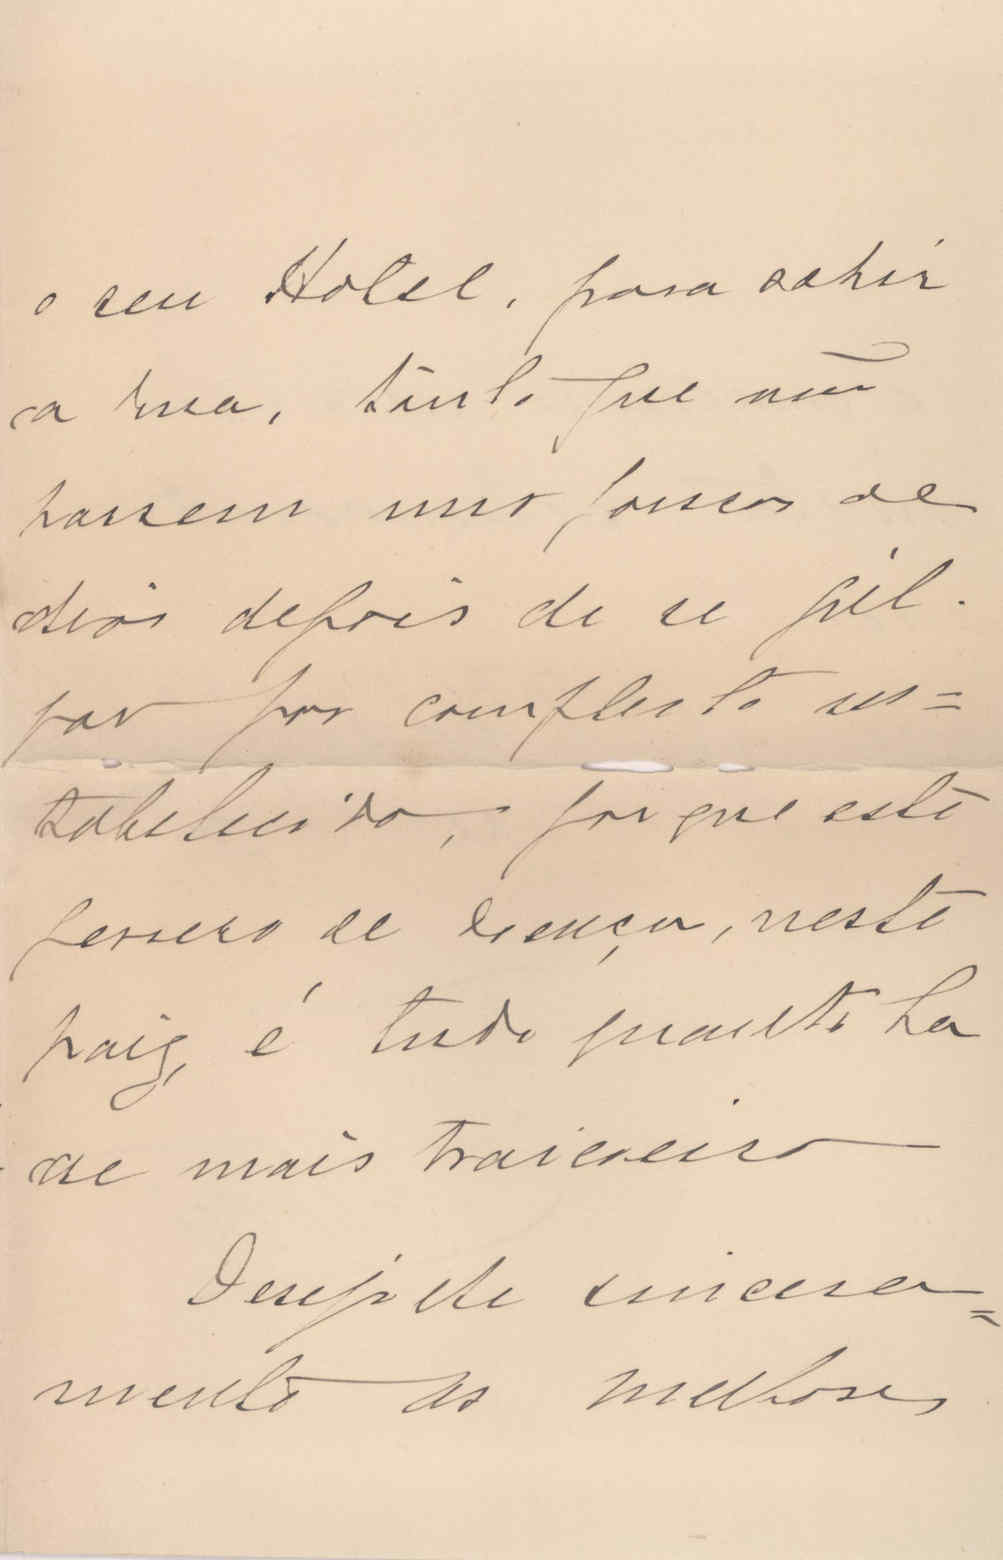 o seu Hotel, para sahir
a rua, sinão que não
passem uns poucos de
dias depois de se jul-
gar por completo res=
tabelecido, porque este
genero de doença, neste
paiz, é tudo quanto ha
de mais traiçoeiro
Desejo lhe sincera=
mente as melhoras